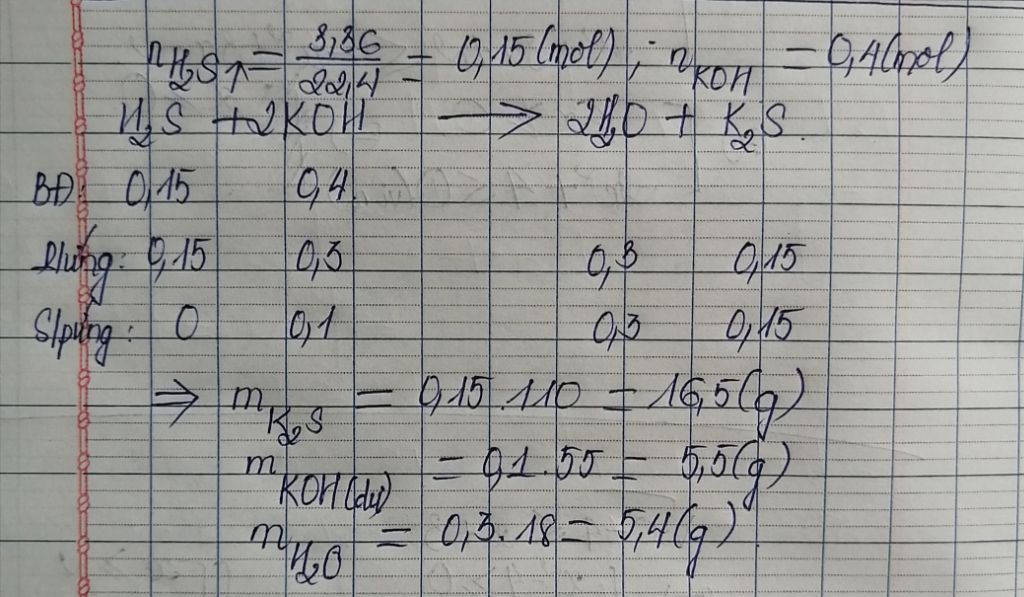 nH₂S↑ = 3,36/22,4 = 0,15 (mol) ; nKOH = 0,4 (mol)
H₂S + 2KOH ⟶ 2H₂O + K₂S.
BĐ: 0,15 0,4
P/ứng: 0,15 0,3 0,3 0,15
S/pứng: 0 0,1 0,3 0,15
⇒ mK₂S = 0,15.110 = 16,5 (g)
mKOH(dư) = 0,1.55 = 5,5 (g)
mH₂O = 0,3.18 = 5,4 (g)